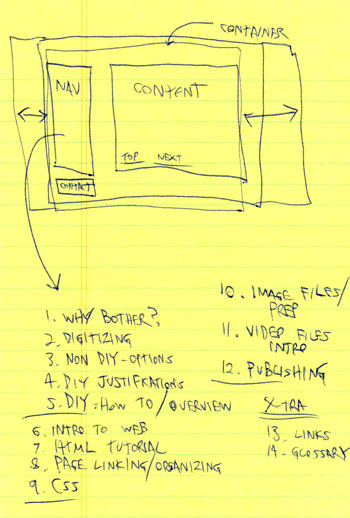 CONTAINER
NAV
CONTENT
TOP NEXT
CONTACT
1. WHY BOTHER?
2. DIGITIZING
3. NON DIY-OPTIONS
4. DIY JUSTIFICATIONS
5. DIY: HOW TO / OVERVIEW
6. INTRO TO WEB
7. HTML TUTORIAL
8. PAGE LINKING/ORGANIZING
9. CSS
10. IMAGE FILES/
PREP
11. VIDEO FILES
INTRO
12. PUBLISHING
X-TRA
13. LINKS
14. GLOSSARY